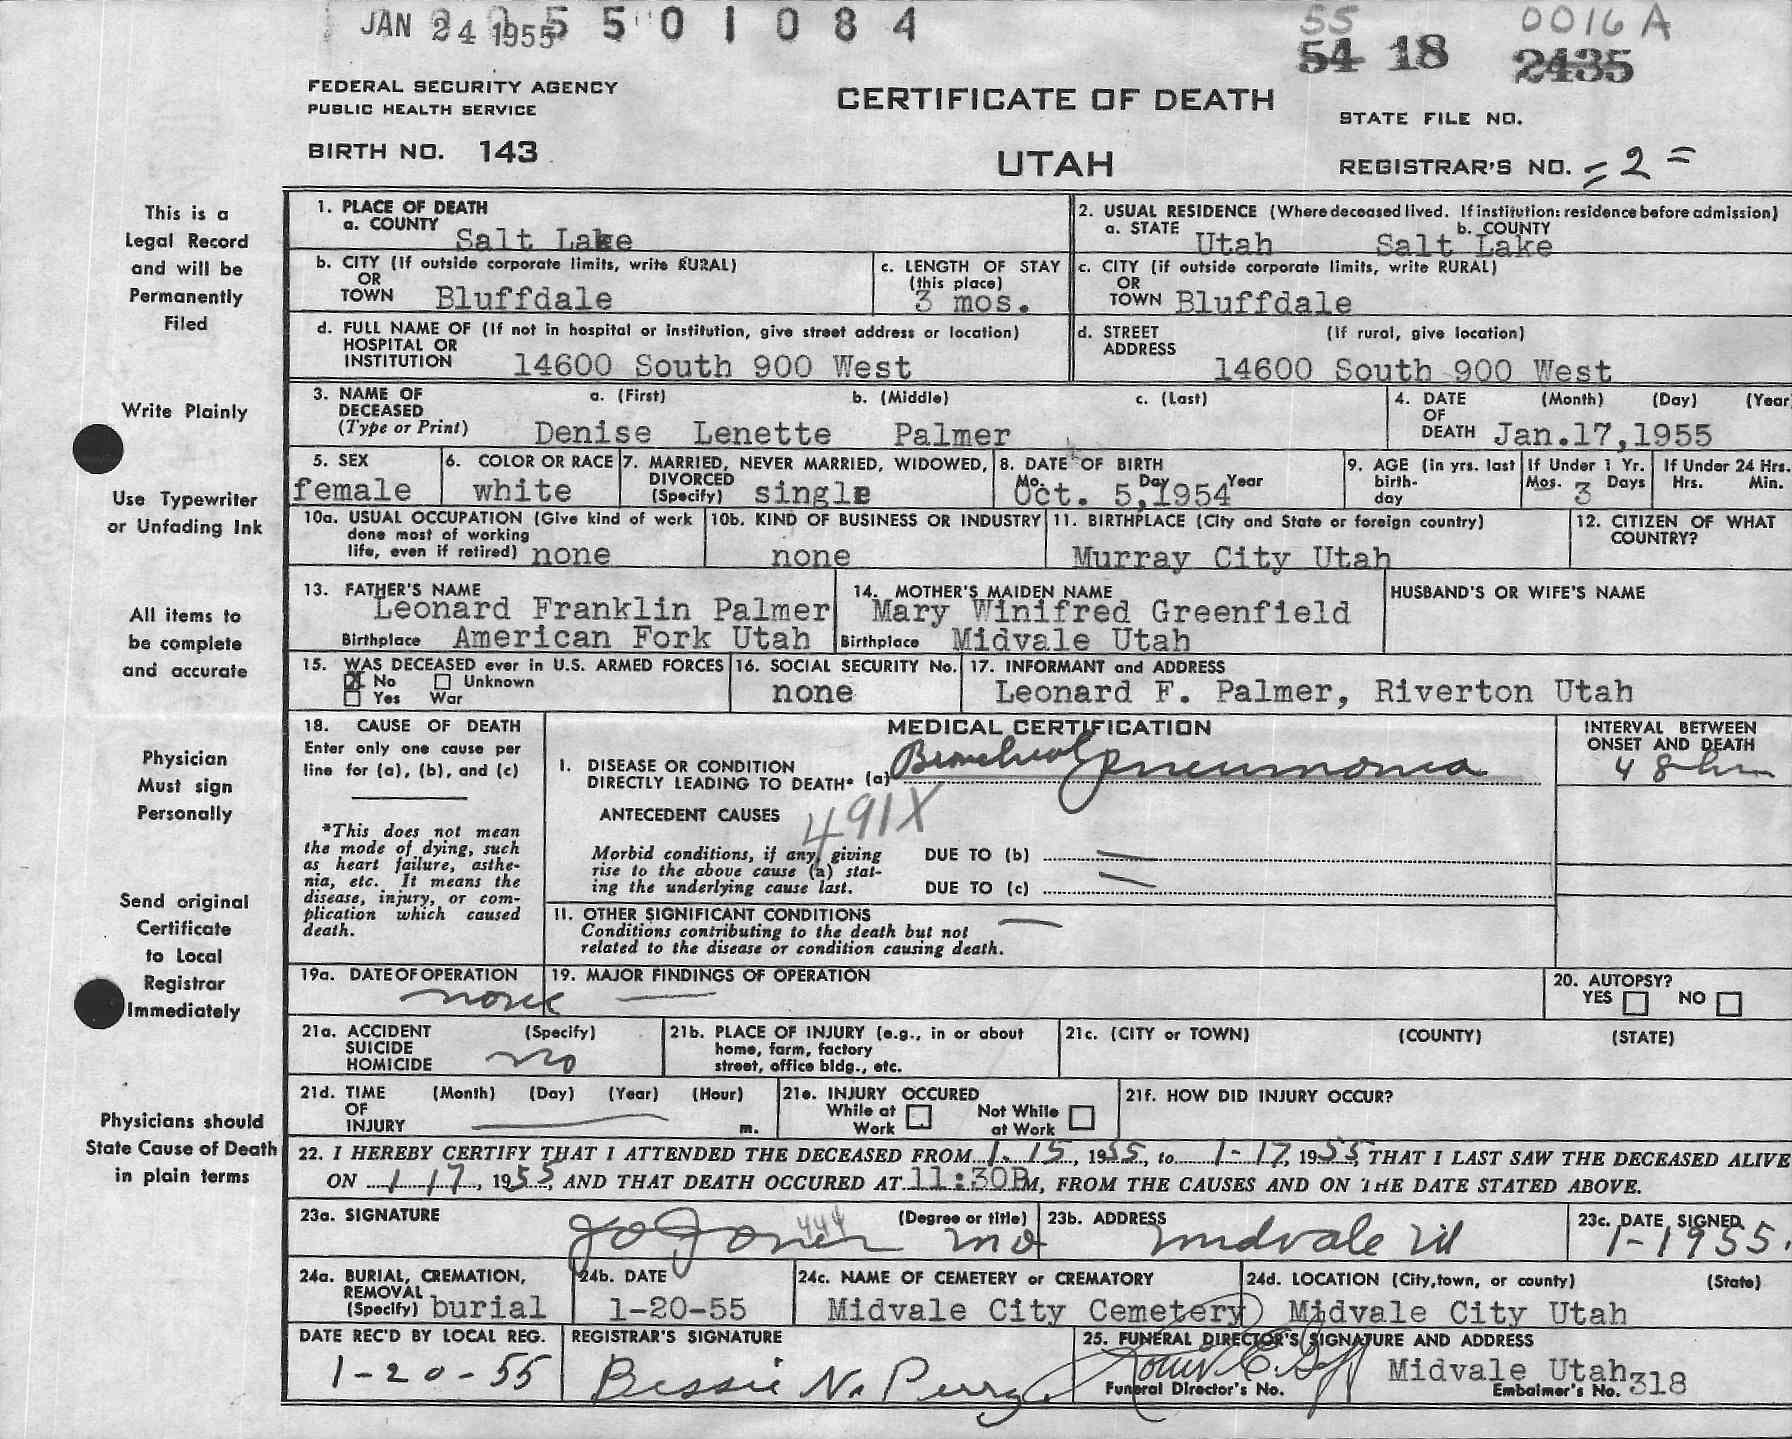 JAN 24 1955 5501084
55 0016 A
54 18 2435
FEDERAL SECURITY AGENCY
PUBLIC HEALTH SERVICE
CERTIFICATE OF DEATH
STATE FILE NO.
BIRTH NO. 143
UTAH
REGISTRAR'S NO. =2=
This is a
Legal Record
and will be
Permanently
Filed
Write Plainly
Use Typewriter
or Unfading Ink
All items to
be complete
and accurate
Physician
Must sign
Personally
Send original
Certificate
to Local
Registrar
Immediately
Physicians should
State Cause of Death
in plain terms
1. PLACE OF DEATH
a. COUNTY Salt Lake
2. USUAL RESIDENCE (Where deceased lived. If institution: residence before admission)
a. STATE Utah b. COUNTY Salt Lake
b. CITY (If outside corporate limits, write RURAL)
OR
TOWN Bluffdale
c. LENGTH OF STAY
(this place)
3 mos.
c. CITY (if outside corporate limits, write RURAL)
OR
TOWN Bluffdale
d. FULL NAME OF (If not in hospital or institution, give street address or location)
HOSPITAL OR
INSTITUTION 14600 South 900 West
d. STREET (If rural, give location)
ADDRESS
14600 South 900 West
3. NAME OF a. (First) b. (Middle) c. (Last)
DECEASED
(Type or Print) Denise Lenette Palmer
4. DATE (Month) (Day) (Year
OF
DEATH Jan.17,1955
5. SEX
female
6. COLOR OR RACE
white
7. MARRIED, NEVER MARRIED, WIDOWED,
DIVORCED
(Specify) single
8. DATE OF BIRTH
Mo. Day Year
Oct. 5,1954
9. AGE (in yrs. last
birth-
day
If Under 1 Yr.
Mos. 3 Days
If Under 24 Hrs.
Hrs. Min.
10a. USUAL OCCUPATION (Give kind of work
done most of working
life, even if retired) none
10b. KIND OF BUSINESS OR INDUSTRY
none
11. BIRTHPLACE (City and State or foreign country)
Murray City Utah
12. CITIZEN OF WHAT
COUNTRY?
13. FATHER'S NAME
Leonard Franklin Palmer
Birthplace American Fork Utah
14. MOTHER'S MAIDEN NAME
Mary Winifred Greenfield
Birthplace Midvale Utah
HUSBAND'S OR WIFE'S NAME
15. WAS DECEASED ever in U.S. ARMED FORCES
X No Unknown
Yes War
16. SOCIAL SECURITY No.
none
17. INFORMANT and ADDRESS
Leonard F. Palmer, Riverton Utah
18. CAUSE OF DEATH
Enter only one cause per
line for (a), (b), and (c)
*This does not mean
the mode of dying, such
as heart failure, asthe-
nia, etc. It means the
disease, injury, or com-
plication which caused
death.
MEDICAL CERTIFICATION
I. DISEASE OR CONDITION
DIRECTLY LEADING TO DEATH* (a) Bronchial pneumonia
ANTECEDENT CAUSES 491X
Morbid conditions, if any, giving
rise to the above cause (a) stat-
ing the underlying cause last.
DUE TO (b) —
DUE TO (c) —
II. OTHER SIGNIFICANT CONDITIONS —
Conditions contributing to the death but not
related to the disease or condition causing death.
INTERVAL BETWEEN
ONSET AND DEATH
48 hrs
19a. DATE OF OPERATION
none
19. MAJOR FINDINGS OF OPERATION
—
20. AUTOPSY?
YES NO
21a. ACCIDENT (Specify)
SUICIDE
HOMICIDE no
21b. PLACE OF INJURY (e.g., in or about
home, farm, factory
street, office bldg., etc.
21c. (CITY or TOWN) (COUNTY) (STATE)
21d. TIME (Month) (Day) (Year) (Hour)
OF
INJURY — m.
21e. INJURY OCCURED
While at Not While
Work at Work
21f. HOW DID INJURY OCCUR?
22. I HEREBY CERTIFY THAT I ATTENDED THE DECEASED FROM 1-15, 1955, to 1-17, 1955, THAT I LAST SAW THE DECEASED ALIVE
ON 1 17, 1955, AND THAT DEATH OCCURED AT 11:30P M, FROM THE CAUSES AND ON THE DATE STATED ABOVE.
23a. SIGNATURE (Degree or title)
Jones MD
23b. ADDRESS
Midvale Ut
23c. DATE SIGNED
1-1955.
24a. BURIAL, CREMATION,
REMOVAL
(Specify) burial
24b. DATE
1-20-55
24c. NAME OF CEMETERY or CREMATORY
Midvale City Cemetery
24d. LOCATION (City,town, or county) (State)
Midvale City Utah
DATE REC'D BY LOCAL REG.
1-20-55
REGISTRAR'S SIGNATURE
Bessie N. Perry
25. FUNERAL DIRECTOR'S SIGNATURE AND ADDRESS
Midvale Utah
Funeral Director's No. Embalmer's No. 318